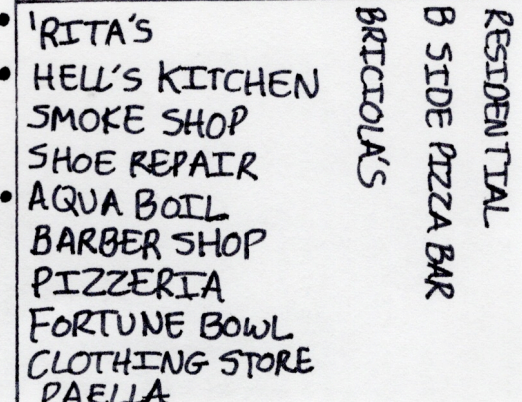 'RITA'S
HELL'S KITCHEN
SMOKE SHOP
SHOE REPAIR
AQUA BOIL
BARBER SHOP
PIZZERIA
FORTUNE BOWL
CLOTHING STORE
PAELLA
BRICIOLA'S
B SIDE PIZZA BAR
RESIDENTIAL